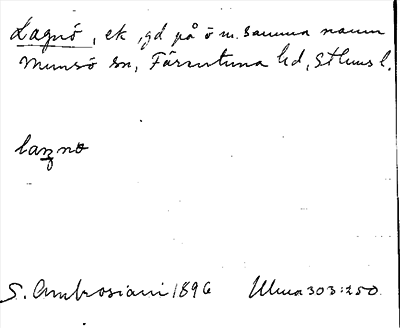 Lagnö, ek, gd på ö m. samma namn
Munsö sn, Färentuna hd, Sthlms l.
lagnö
S. Ambrosiani 1896 Ulma 303:250.